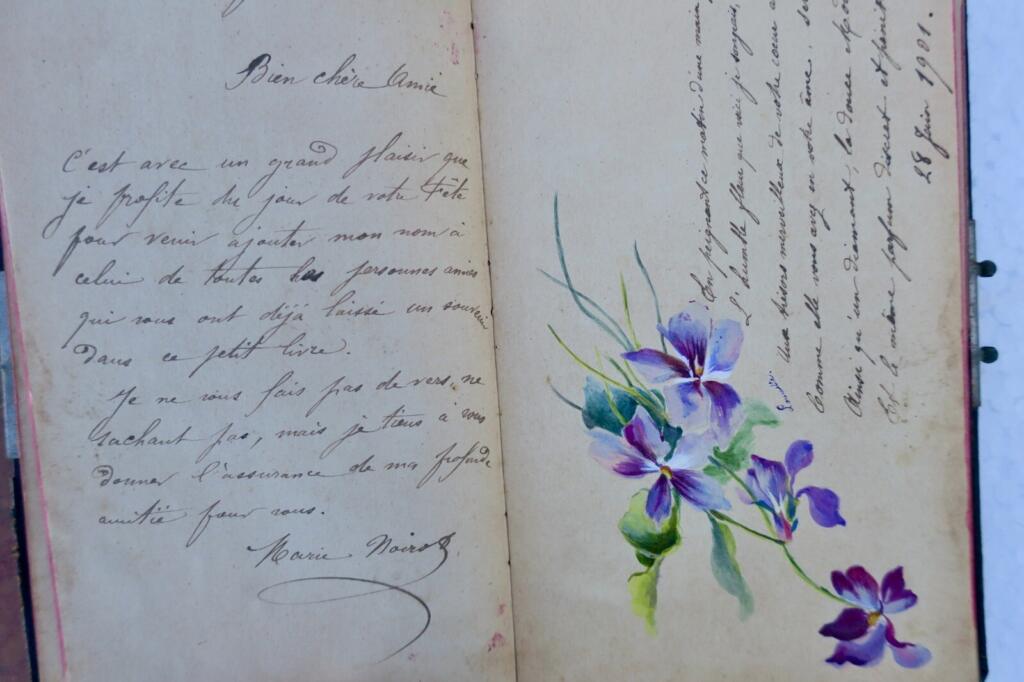 Bien chère Amie
C'est avec un grand plaisir que
je profite du jour de votre Fête
pour venir ajouter mon nom à
celui de toutes les personnes amies
qui vous ont déjà laissé un souvenir
dans ce petit livre.
Je ne vous fais pas de vers, ne
sachant pas, mais je tiens à vous
donner l'assurance de ma profonde
amitié pour vous.
Marie Noirot
En peignant ce matin d'une main
L'humble fleur que voici je songeais,
Aux trésors merveilleux de votre cœur a
Comme elle vous avez en votre âme,
Ainsi qu'un diamant, la douce
Et le même parfum discret et
28 Juin 1901.